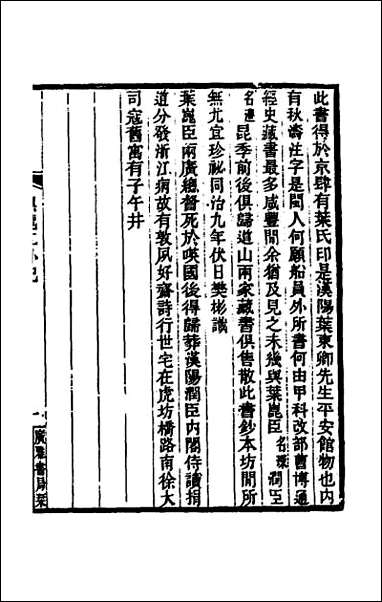 此書得於京肆有葉氏印是漢陽葉東卿先生平安館物也内
有秋濤注字是閩人何願船員外所書何由甲科改部曹博通
經史藏書最多咸豐間余猶及見之未幾與葉崑臣名琛潤臣
名澧昆季前後俱歸道山兩家藏書俱售散此書鈔本坊間所
無尤宜珍祕同治九年伏日樊彬識
葉崑臣兩廣總督死於㖫國後得歸葬漢陽潤臣内閣侍讀捐
道分發浙江病故有敦夙好齋詩行世宅在虎坊橋路南徐大
司寇舊寓有子午井
一
廣雅書局栞